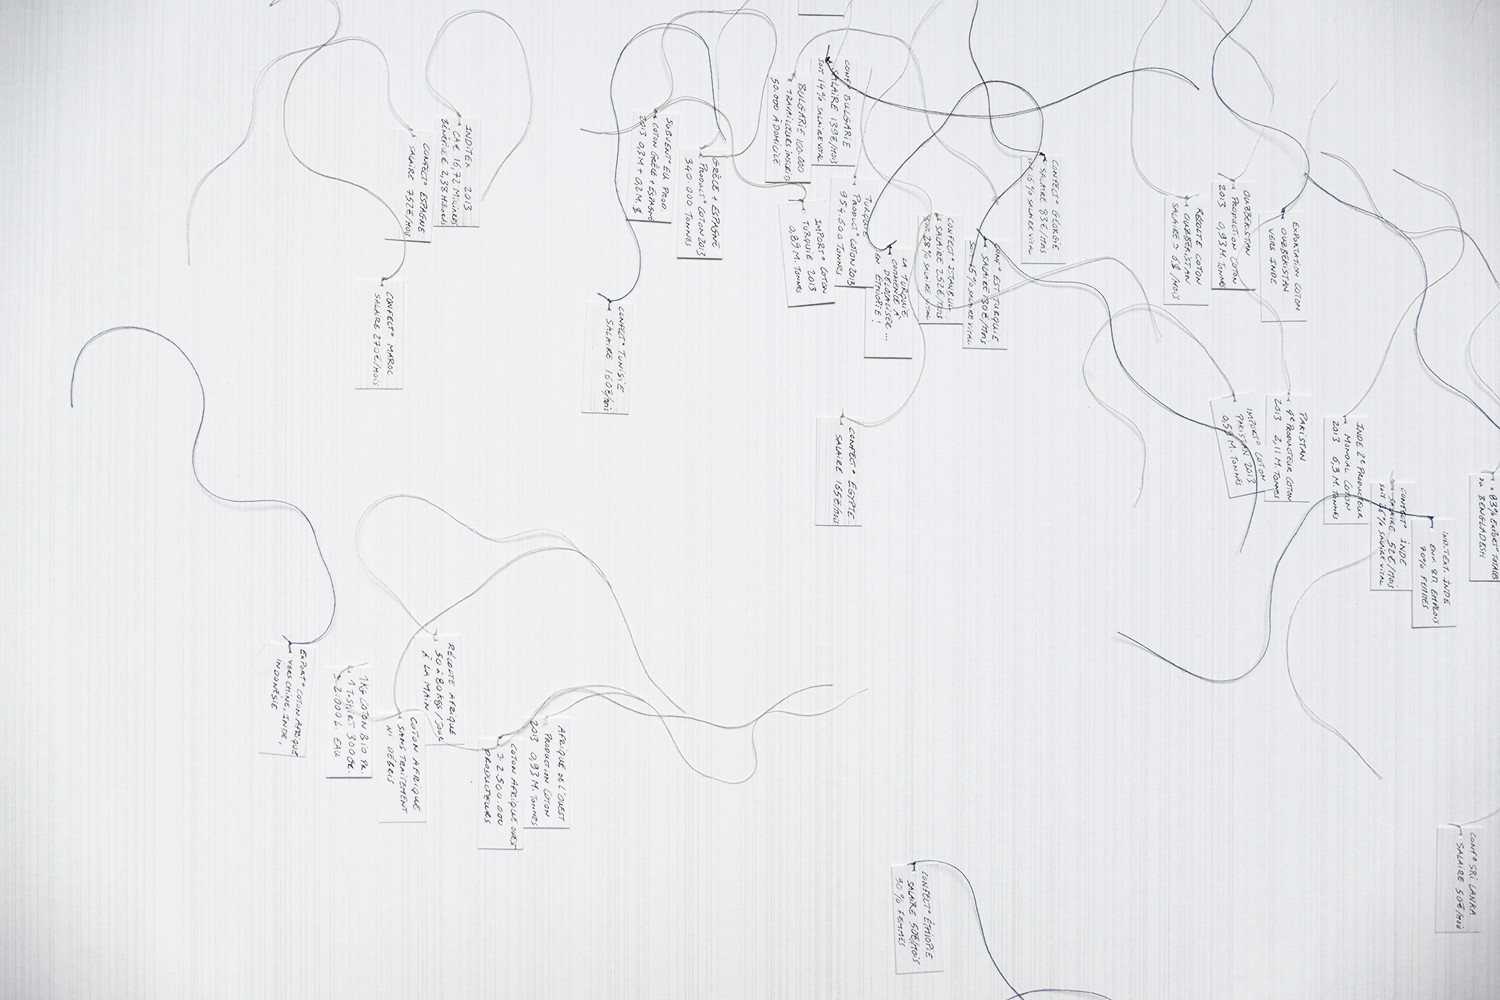 INDITEX 2013
CAe 16,72 MILLIARDS
BÉNÉFICE 2,38 MILLIARDS
CONFECT° ESPAGNE
SALAIRE 752€/MOIS
CONFECT° MAROC
SALAIRE 270€/MOIS
SUBVENT° EU PROD
COTON GRÈCE + ESPAGNE
2013 0,3M + 0,2M.$
GRÈCE + ESPAGNE
PRODUCT° COTON 2013
340 000 TONNES
CONFECT° TUNISIE
SALAIRE 160€/MOIS
BULGARIE 100.000
TRAVAILLEURS INSCRIS
50.000 À DOMICILE
CONF° BULGARIE
SALAIRE 139€/MOIS
SOIT 14% SALAIRE VITAL
IMPORT° COTON
TURQUIE 2013
0,89 M. TONNES
TURQUIE
PRODUCT° COTON 2013
954.600 TONNES
LA TURQUIE
COMMENCE À
DÉLOCALISER...
EN ÉTHIOPIE!
CONFECT° ISTANBUL
SALAIRE 252€/MOIS
SOIT 28% SALAIRE VITAL
CONF° EST TURQUIE
SALAIRE 130€/MOIS
SOIT 15% SALAIRE VITAL
CONFECT° GÉORGIE
SALAIRE 83€/MOIS
SOIT 16% SALAIRE VITAL
CONFECT° EGYPTE
SALAIRE 165€/MOIS
RÉCOLTE COTON
OUZBÉKISTAN
SALAIRE = 6$/MOIS
OUZBÉKISTAN
PRODUCTION COTON
2013 0,93 M. TONNES
EXPORTATION COTON
OUZBÉKISTAN
VERS INDE
IMPORT° COTON
PAKISTAN 2013
M. TONNES
PAKISTAN
4e PRODUCTEUR COTON
2013 2,11 M. TONNES
INDE 2e PRODUCTEUR
MONDIAL COTON
2013 6,3 M. TONNES
CONFECT° INDE
SALAIRE 52€/MOIS
SOIT 26% SALAIRE VITAL
IND. TEXT. INDE
ENV. 8M. EMPLOIS
70% FEMMES
= 83% EXPORT° TOTALES
DU BENGLADESH
EXPORT° COTON AFRIQUE
VERS CHINE, INDE,
INDONÉSIE
1 KG COTON BIO PR.
1 T-SHIRT 300GR.
= 2.000 L. EAU
COTON AFRIQUE
SANS TRAITEMENT
NI DÉBRIS
RÉCOLTE AFRIQUE
50 À 80 KGS/JOUR
À LA MAIN
COTON AFRIQUE OUEST
= 2.500.000
PRODUCTEURS
AFRIQUE DE L'OUEST
PRODUCTION COTON
2013 0,93 M. TONNES
CONFECT° ÉTHIOPIE
SALAIRE 50€/MOIS
90% FEMMES
CONF° SRI LANKA
SALAIRE 50€/MOIS